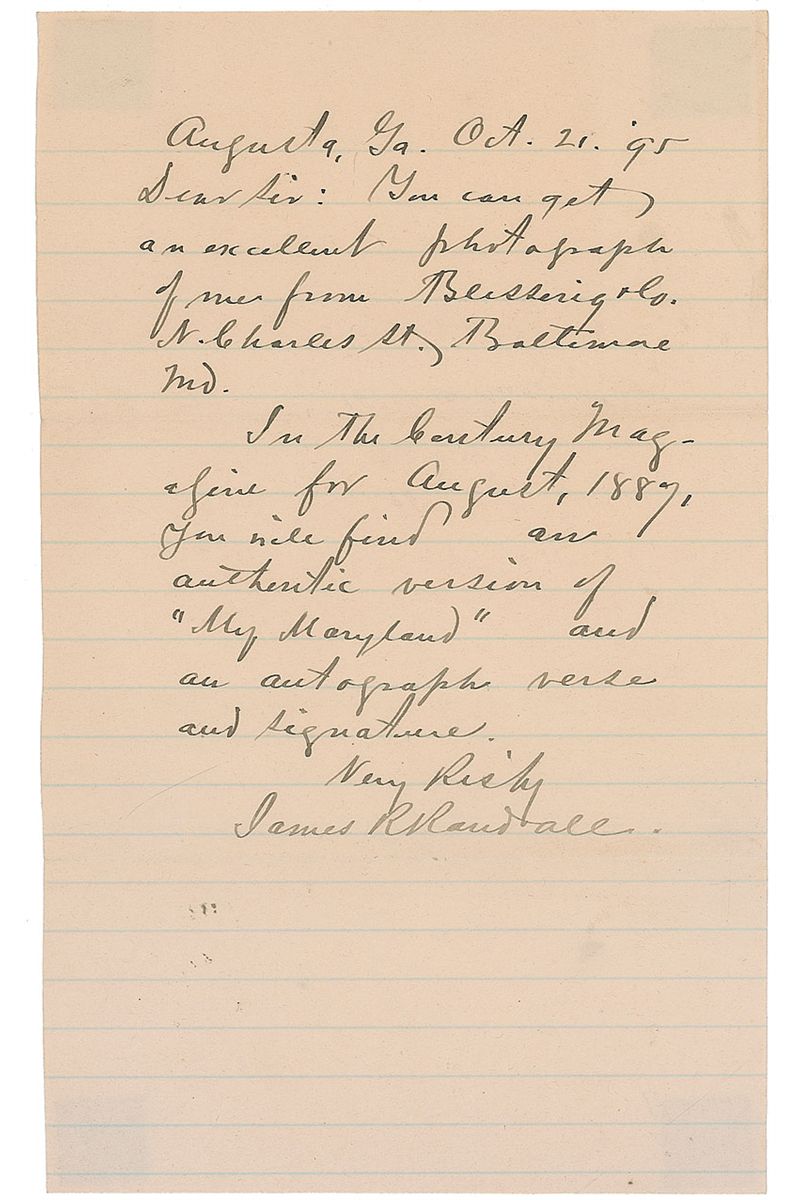 Augusta, Ga. Oct. 21. '95
Dear Sir: You can get
an excellent photograph
of me from Blessing & Co.
N. Charles St., Baltimore
Md.
In the Century Mag-
azine for August, 1887,
you will find an
authentic version of
"My Maryland" and
an autograph verse
and signature.
Very Resp'y
James R Randall.